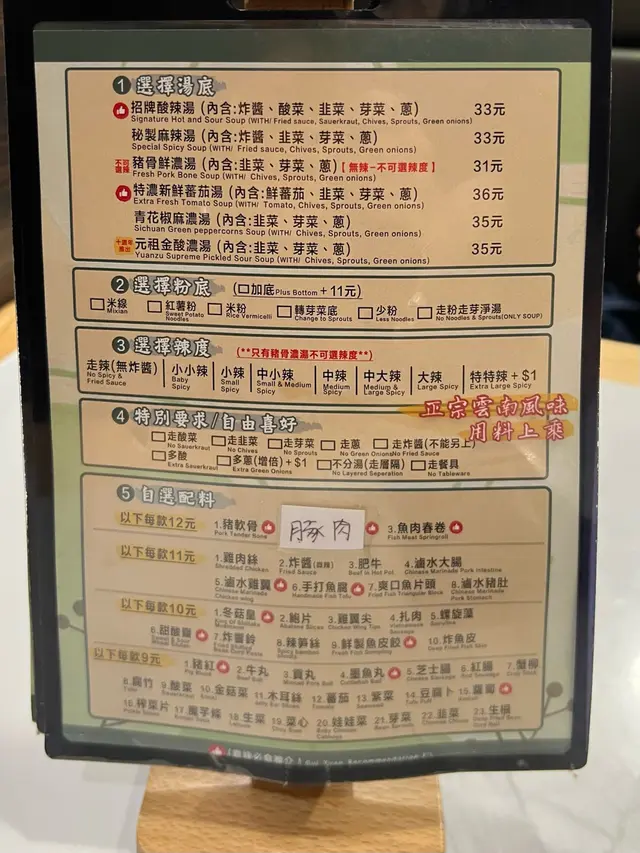 1 選擇湯底
招牌酸辣湯 (內含:炸醬、酸菜、韮菜、芽菜、蔥) 33元
Signature Hot and Sour Soup (WITH/ Fried sauce, Sauerkraut, Chives, Sprouts, Green onions)
秘製麻辣湯 (內含:炸醬、韮菜、芽菜、蔥) 33元
Special Spicy Soup (WITH/ Fried sauce, Chives, Sprouts, Green onions)
不可選辣 豬骨鮮濃湯 (內含:韮菜、芽菜、蔥)【無辣-不可選辣度】 31元
Fresh Pork Bone Soup (WITH/ Chives, Sprouts, Green onions)
特濃新鮮蕃茄湯 (內含:鮮蕃茄、韮菜、芽菜、蔥) 36元
Extra Fresh Tomato Soup (WITH/ Tomato, Chives, Sprouts, Green onions)
青花椒麻濃湯 (內含:韮菜、芽菜、蔥) 35元
Sichuan Green peppercorns Soup (WITH/ Chives, Sprouts, Green onions)
元祖金酸濃湯 (內含:韮菜、芽菜、蔥) 35元
Yuanzu Supreme Pickled Sour Soup (WITH/ Chives, Sprouts, Green onions)
2 選擇粉底 (口加底Plus Bottom + 11元)
米線 紅薯粉 米粉 轉芽菜底 少粉 走粉走芽淨湯
Mixian Sweet Potato Noodles Rice Vermicelli Change to Sprouts Less Noodles No Noodles & Sprouts(ONLY SOUP)
3 選擇辣度 (**只有豬骨濃湯不可選辣度**)
走辣(無炸醬) 小小辣 小辣 中小辣 中辣 中大辣 大辣 特特辣 + $1
No Spicy & Fried Sauce Baby Spicy Small Spicy Small & Medium Spicy Medium Spicy Medium & Large Spicy Large Spicy Extra Large Spicy
正宗雲南風味
用料上乘
4 特別要求/自由喜好
走酸菜 走韮菜 走芽菜 走蔥 走炸醬(不能另上)
No Sauerkraut No Chives No Sprouts No Green Onions No Fried Sauce
多酸 多蔥(增倍) + $1 不分湯(走層隔) 走餐具
Extra Sauerkraut Extra Green Onions No Layered Seperation No Tableware
5 自選配料
以下每款12元 1.豬軟骨 豚肉 3.魚肉春卷
Pork Tender Bone Fish Meat Springroll
以下每款11元 1.雞肉絲 2.炸醬 3.肥牛 4.滷水大腸
Shredded Chicken Fried Sauce Beef in Hot Pot Chinese Marinade Pork Intestine
5.滷水雞翼 6.手打魚腐 7.爽口魚片頭 8.滷水豬肚
Chinese Marinade Chicken wing Handmade Fish Tofu Fried Fish Triangular Block Chinese Marinade Pork Stomach
以下每款10元 1.冬菇皇 2.鮑片 3.雞翼尖 4.扎肉 5.螺旋藻
Abalone Slices Chicken Wing Tips Vietnamese Sausage Spirulina
6.甜酸齏 7.炸響鈴 8.辣笋絲 9.鮮製魚皮餃 10.炸魚皮
以下每款9元 1.豬紅 2.牛丸 3.貢丸 4.墨魚丸 5.芝士腸 6.紅腸 7.蟹柳
8.腐竹 9.酸菜 10.金菇菜 11.木耳絲 12.蕃茄 13.紫菜 14.豆腐卜 15.蘿蔔
16.榨菜片 17.魔芋條 18.生菜 19.菜心 20.娃娃菜 21.芽菜 22.韮菜 23.生根